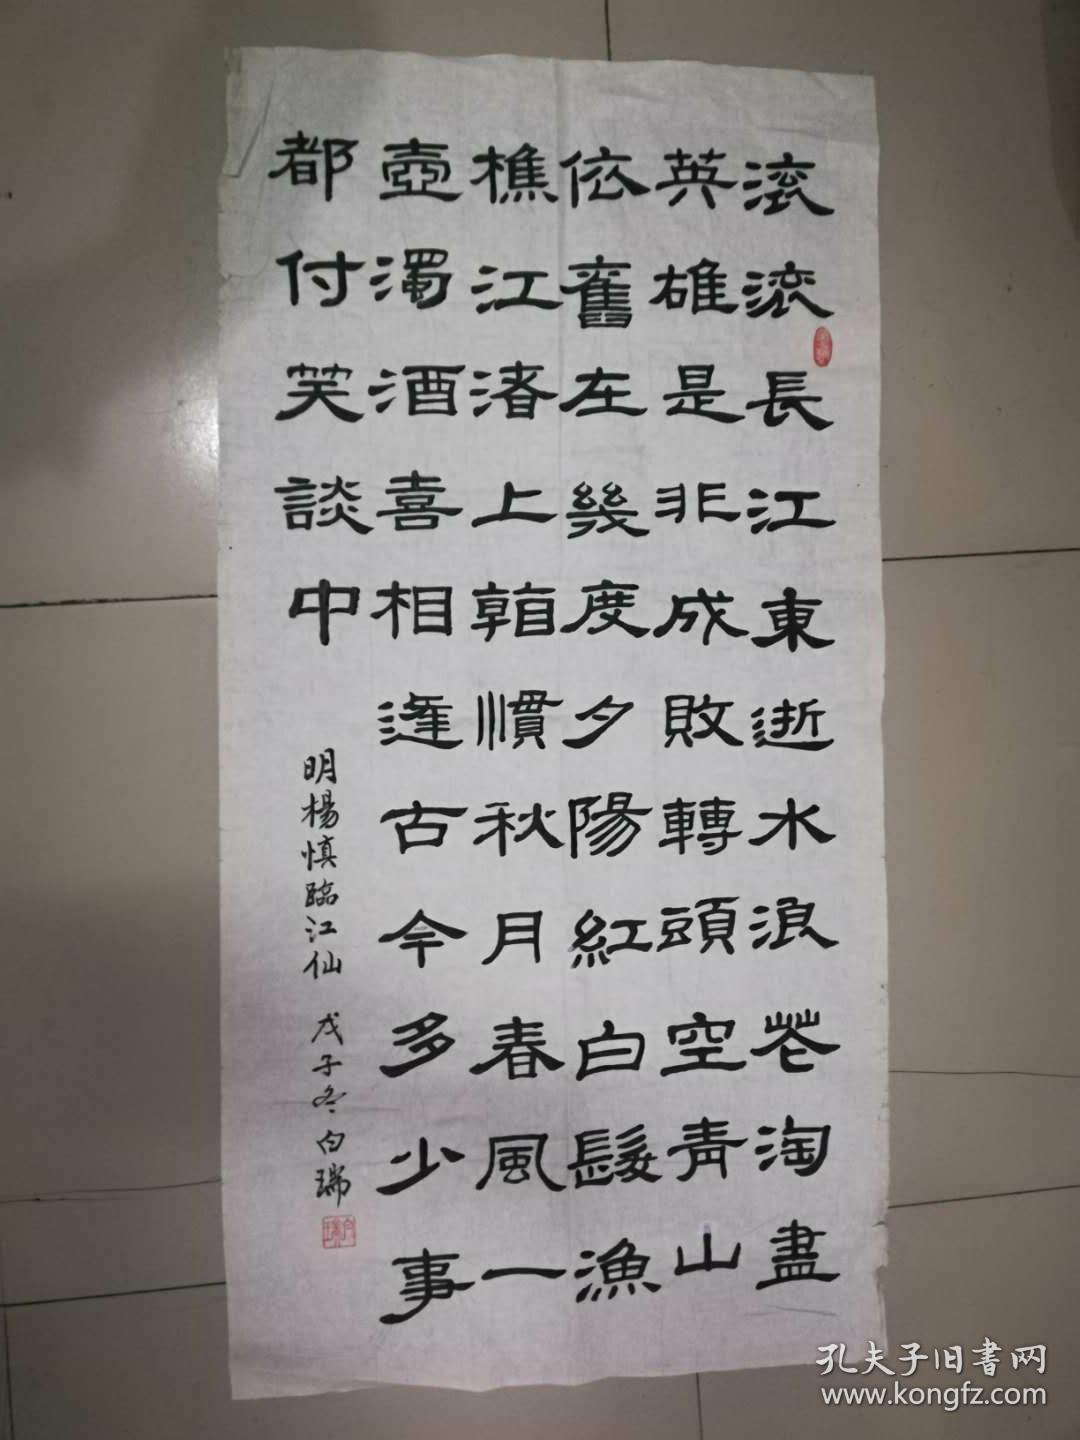 滚滚長江東逝水浪花淘盡
英雄是非成敗轉頭空青山
依舊在幾度夕陽紅白髮漁
樵江渚上䩗慣秋月春風一
壺濁酒喜相逢古今多少事
都付笑談中
明楊慎臨江仙 戊子冬白瑞
孔夫子旧書网
www.kongfz.com